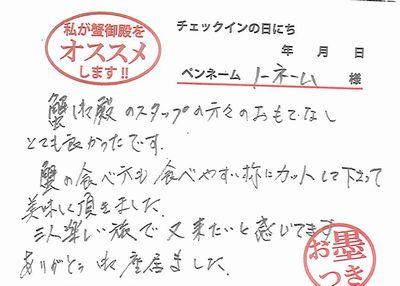 私が蟹御殿を
オススメ
します!!
チェックインの日にち
年 月 日
ペンネーム ノーネーム 様
蟹御殿のスタップの方々のおもてなし
とても良かったです。
蟹の食べ方も食べやすい様にカットして下さって
美味しく頂きました。
三人楽しい旅で又来たいと感じてます
ありがとう御座居ました。
お墨
つき